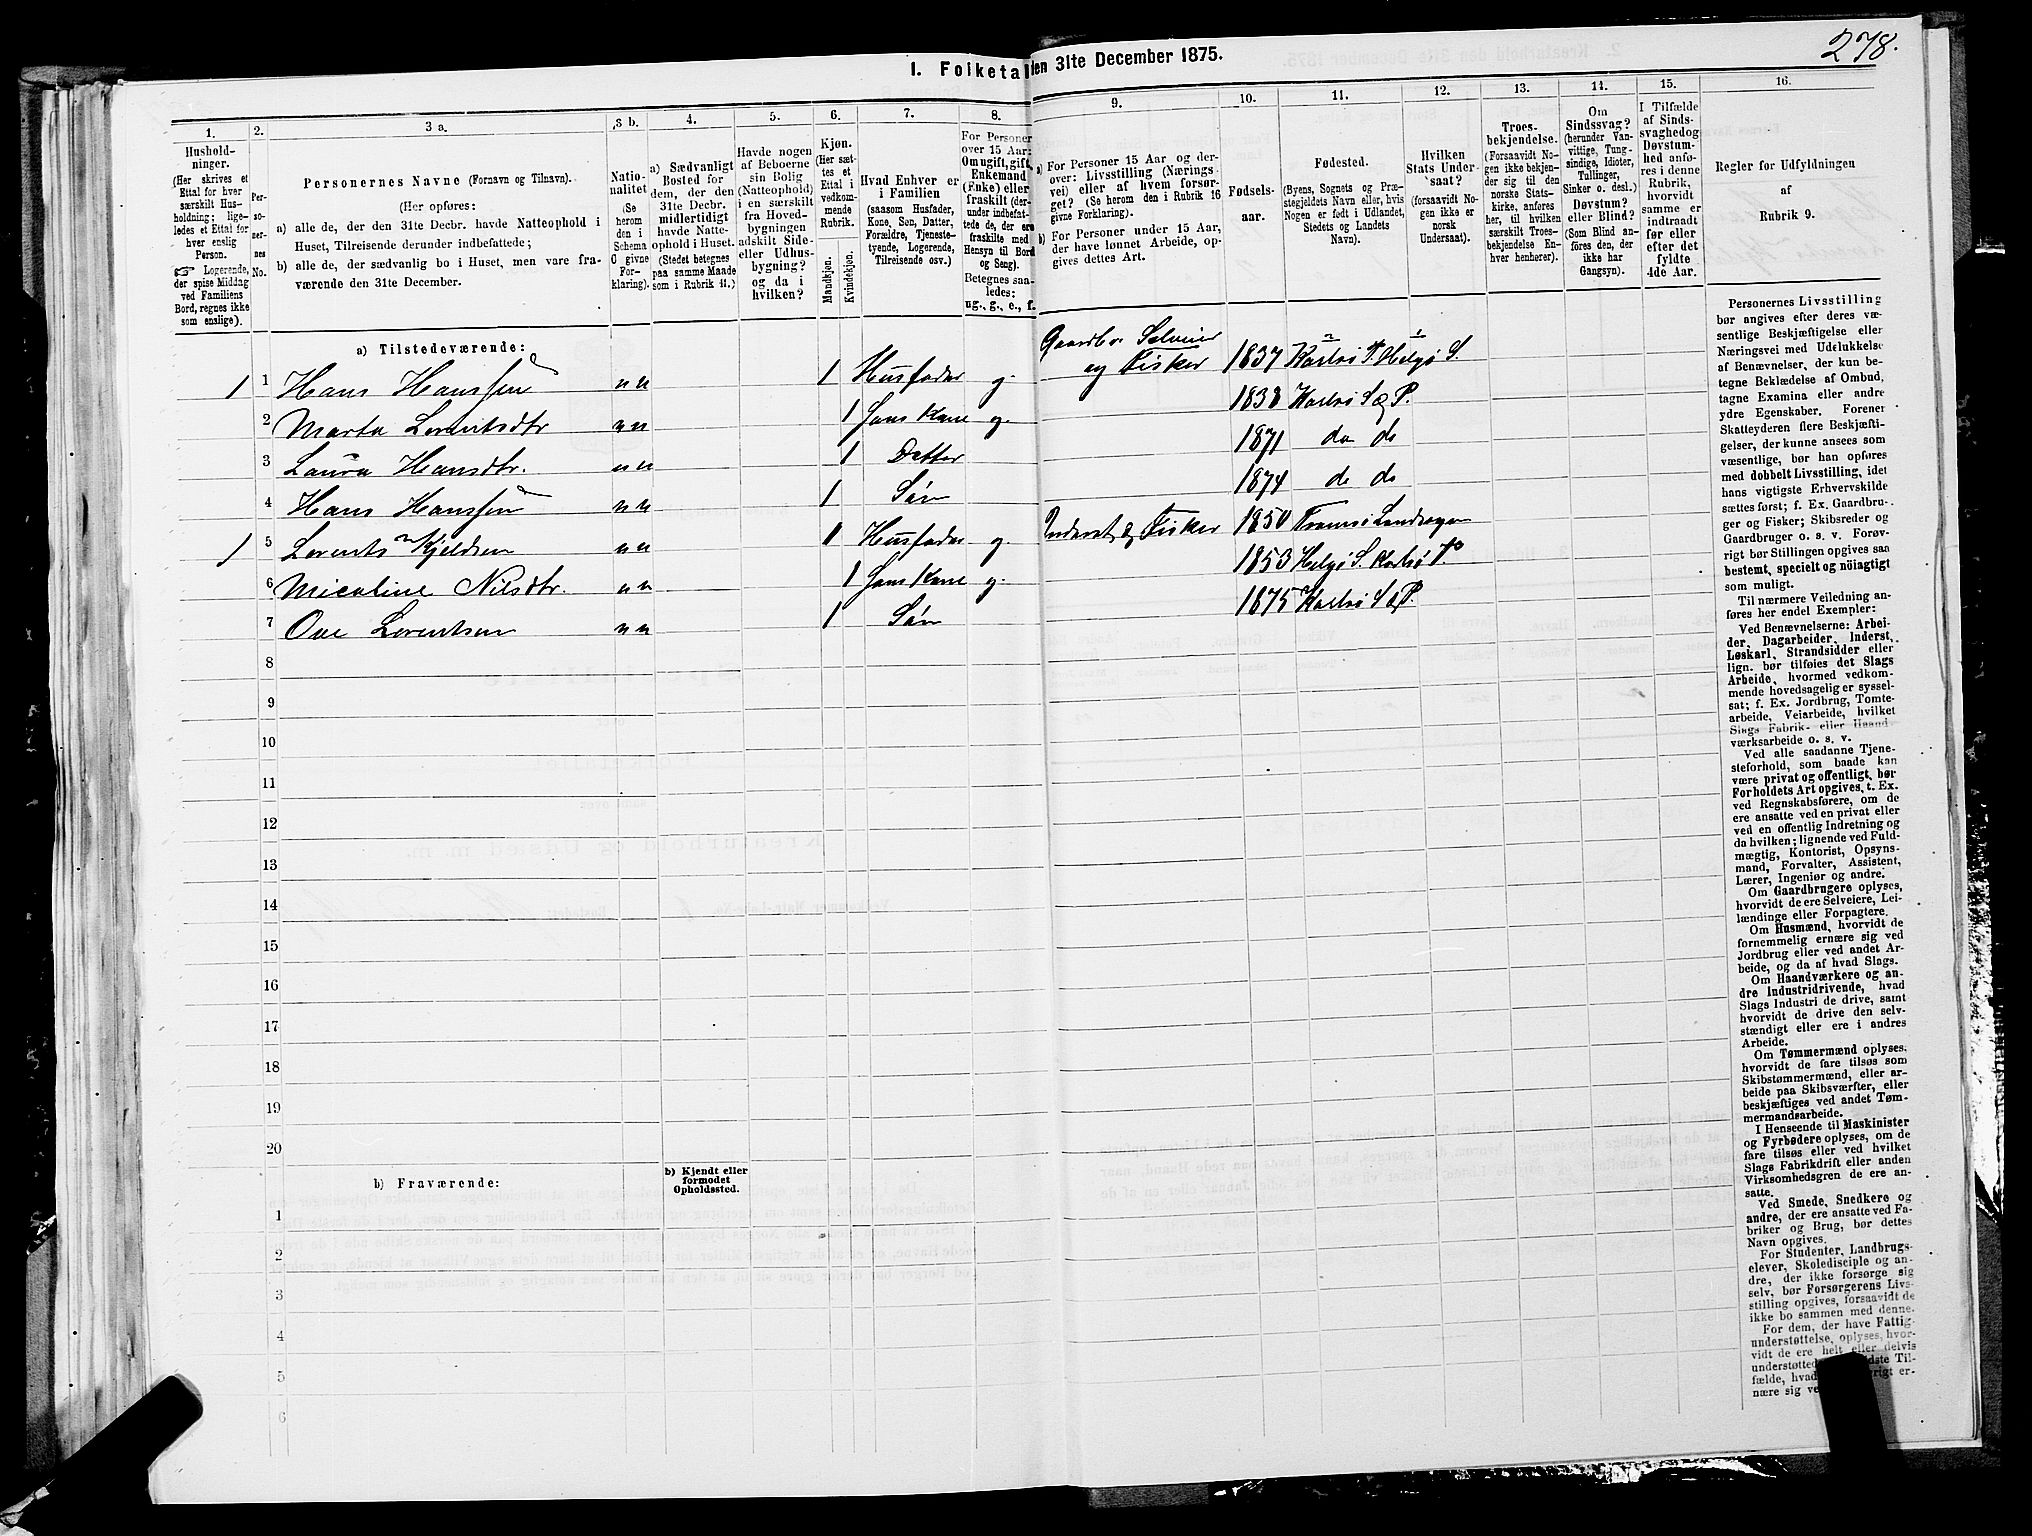 278.
I. Folketa den 31te December 1875.
1. 2. 3 a. 3 b. 4. 5. 6. 7. 8. 9. 10. 11. 12. 13. 14. 15. 16.
Hushold-
ninger.
(Her skrives et
Ettal for hver
særskilt Hus-
holdning; lige-
ledes et Ettal for
hver enslig
Person.
☞ Logerende,
der spise Middag
ved Familiens
Bord, regnes ikke
som enslige).
Per-
so-
ner-
nes
No.
Personernes Navne (Fornavn og Tilnavn).
(Her opføres:
a) alle de, der den 31te Decbr. havde Natteophold i
Huset, Tilreisende derunder indbefattede;
b) alle de, der sædvanlig bo i Huset, men vare fra-
værende den 31te December.
Natio-
nalitet
(Se
herom
den i
Schema
C givne
For-
klaring).
a) Sædvanligt
Bosted for
dem, der den
31te Decbr.
midlertidigt
havde Natte-
ophold i Huset.
(Stedet betegnes
paa samme Maade
som i Rubrik 11.)
Havde nogen
af Beboerne
sin Bolig
(Natteophold)
i en særskilt
fra Hoved-
bygningen
adskilt Side-
eller Udhus-
bygning?
og da i
hvilken?
Kjøn.
(Her sæt-
tes et
Ettal i
vedkom-
mende
Rubrik.
Mandkjøn.
Kvindekjøn.
Hvad Enhver er
i Familien
(saasom Husfader,
Kone, Søn, Datter,
Forældre, Tjeneste-
tyende, Logerende,
Tilreisende osv.)
For Personer
over 15 Aar:
Om ugift, gift,
Enkemand
(Enke) eller
fraskilt (der-
under indbefat-
tede de, der ere
fraskilte med
Hensyn til Bord
og Seng).
Betegnes saa-
ledes:
ug., g., e., f.
a) For Personer 15 Aar og der-
over: Livsstilling (Nærings-
vei) eller af hvem forsør-
get? (Se herom den i Rubrik 16
givne Forklaring).
b) For Personer under 15 Aar,
der have lønnet Arbeide, op-
gives dettes Art.
Fødsels-
aar.
Fødested.
(Byens, Sognets og Præ-
stegjeldets Navn eller, hvis
Nogen er født i Udlandet,
Stedets og Landets
Navn).
Hvilken
Stats Under-
saat?
(forsaavidt No-
gen ikke er
norsk
Undersaat).
Troes-
bekjendelse.
(Forsaavidt No-
gen ikke bekjen-
der sig til den
norske Stats-
kirke, anføres
her, til hvilken
særskilt Troes-
bekjendelse En-
hver henhører).
Om
Sindssvag?
(herunder Van-
vittige, Tung-
sindige, Idioter,
Tullinger,
Sinker o. desl.)
Døvstum?
eller Blind?
(Som Blind an-
føres den, der
ikke har
Gangsyn).
I Tilfælde
af Sinds-
svaghedog
Døvstum-
hed anfø-
res i denne
Rubrik,
hvorvidt
samme er
indtraadt
før eller
efter det
fyldte
4de Aar.
Regler for Udfyldningen
af
Rubrik 9.
a) Tilstedeværende:
1 1 Hans Hanssen n n 1 Husfader g. Gaardbr. Selveier og Fisker 1837 Karlsö P. Helgö S.
2 Marta Lorentsdtr n n 1 Hans Kone g. 1838 Karlsö S & P.
3 Laura Hansdtr. n n 1 Datter 1871 do do
4 Hans Hanssen n n 1 Sön 1874 do do
1 5 Lorents Kjeldsen n n 1 Husfader g. Inderst, & Fisker 1850 Tromsö Landsogn
6 Nicoline Nilsdtr. n n 1 Hans Kone g. 1853 Helgö S. Karlsö P.
7 Ove Lorentsen n n 1 Sön 1875 Karlsö S & P.
8
9
10
11
12
13
14
15
16
17
18
19
20
b) Fraværende:
b) Kjendt eller
formodet
Opholdssted.
1
2
3
4
5
6
Personernes Livsstilling
bør angives efter deres væ-
sentlige Beskjæftigelse eller
Næringsvei med Udelukkelse
af Benævnelser, der kun be-
tegne Beklædelse af Ombud,
tagne Examina eller andre
ydre Egenskaber. Forener
Skatteyderen flere Beskjæfti-
gelser, der kunne ansees som
væsentlige, bør han opføres
med dobbelt Livsstilling, idet
hans vigtigste Erhvervskilde
sættes først; f. Ex. Gaardbru-
ger og Fisker; Skibsreder og
Gaardbruger o. s. v. Forøv-
rigt bør Stillingen opgives saa
bestemt, specielt og nöiagtigt
som muligt.
Til nærmere Veiledning an-
føres her endel Exempler:
Ved Benævnelserne: Arbei-
der, Dagarbeider, Inderst,
Løskarl, Strandsidder eller
lign. bør tilføies det Slags
Arbeide, hvormed vedkom-
mende hovedsagelig er syssel-
sat; f. Ex. Jordbrug, Tomte-
arbeide, Veiarbeide, hvilket
Slags Fabrik- eller Haand-
værksarbeide o. s. v.
Ved alle saadanne Tjene-
steforhold, som baade kan
være privat og offentligt, bør
Forholdets Art opgives, t. Ex.
ved Regnskabsførere, om de
ere ansatte ved en privat eller
ved en offentlig Indretning og
da hvilken; lignende ved Fuld-
mægtig, Kontorist, Opsyns-
mand, Forvalter, Assistent,
Lærer, Ingeniør og andre.
Om Gaardbrugere oplyses,
hvorvidt de ere Selveiere, Lei-
lændinge eller Forpagtere.
Om Husmænd, hvorvidt de
fornemmelig ernære sig ved
Jordbrug eller ved andet Ar-
beide, og da af hvad Slags.
Om Haandværkere og an-
dre Industridrivende, hvad
Slags Industri de drive, samt
hvorvidt de drive den selv-
stændigt eller ere i andres
Arbeide.
Om Tømmermænd oplyses,
hvorvidt de fare tilsøs som
Skibstømmermænd, eller ar-
beide paa Skibsværfter, eller
beskjæftiges ved andet Tøm-
mermandsarbeide.
I Henseende til Maskinister
og Fyrbødere oplyses, om de
fare tilsøs eller ved hvilket
Slags Fabrikdrift eller anden
Virksomhedsgren de ere an-
satte.
Ved Smede, Snedkere og
andre, der ere ansatte ved Fa-
briker og Brug, bør dettes
Navn opgives.
For Studenter, Landbrugs-
elever, Skoledisciple og an-
dre, der ikke forsørge sig
selv, bør Forsørgerens Livs-
stilling opgives, forsaavidt de
ikke bo sammen med denne.
For dem, der have Fattig-
understøttelse, oplyses, hvor-
vidt de ere helt eller delvis
understøttede Til-
fælde, hvad er-
nære sig